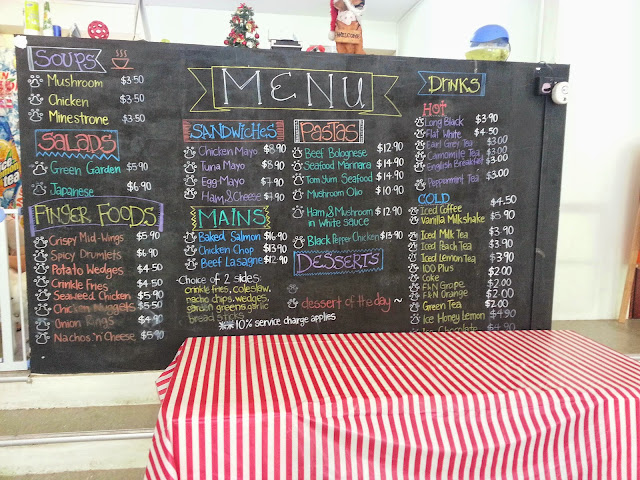 WELCOME
MENU
SOUPS
Mushroom $3.50
Chicken $3.50
Minestrone $3.50
SALADS
Green Garden $5.90
Japanese $6.90
FINGER FOODS
Crispy Mid-Wings $5.90
Spicy Drumlets $6.90
Potato Wedges $4.50
Crinkle Fries $4.50
Seaweed Chicken $5.90
Chicken Nuggets $5.50
Onion Rings $4.90
Nachos 'n Cheese $5.90
SANDWICHES
Chicken Mayo $8.90
Tuna Mayo $8.90
Egg Mayo $7.90
Ham & Cheese $7.90
MAINS
Baked Salmon $16.90
Chicken Chop $13.90
Beef Lasagne $12.90
-Choice of 2 sides:
crinkle fries, coleslaw,
nacho chips, wedges,
garden greens, garlic
bread sticks
**10% service charge applies
PASTAS
Beef Bolognese $12.90
Seafood Marinara $14.90
Tom Yum Seafood $14.90
Mushroom Olio $10.90
Ham & Mushroom $12.90
in white sauce
Black Pepper Chicken $13.90
DESSERTS
dessert of the day ~
DRINKS
HOT
Long Black $3.90
Flat White $4.50
Earl Grey Tea $3.00
Camomile Tea $3.00
English Breakfast $3.00
Peppermint Tea $3.00
COLD
Iced Coffee $4.50
Vanilla Milkshake $5.90
Iced Milk Tea $3.90
Iced Peach Tea $3.90
Iced Lemon Tea $3.90
100 Plus $2.00
Coke $2.00
F&N Grape $2.00
F&N Orange $2.00
Green Tea $2.00
Ice Honey Lemon $4.90
Ice Chocolate $4.90